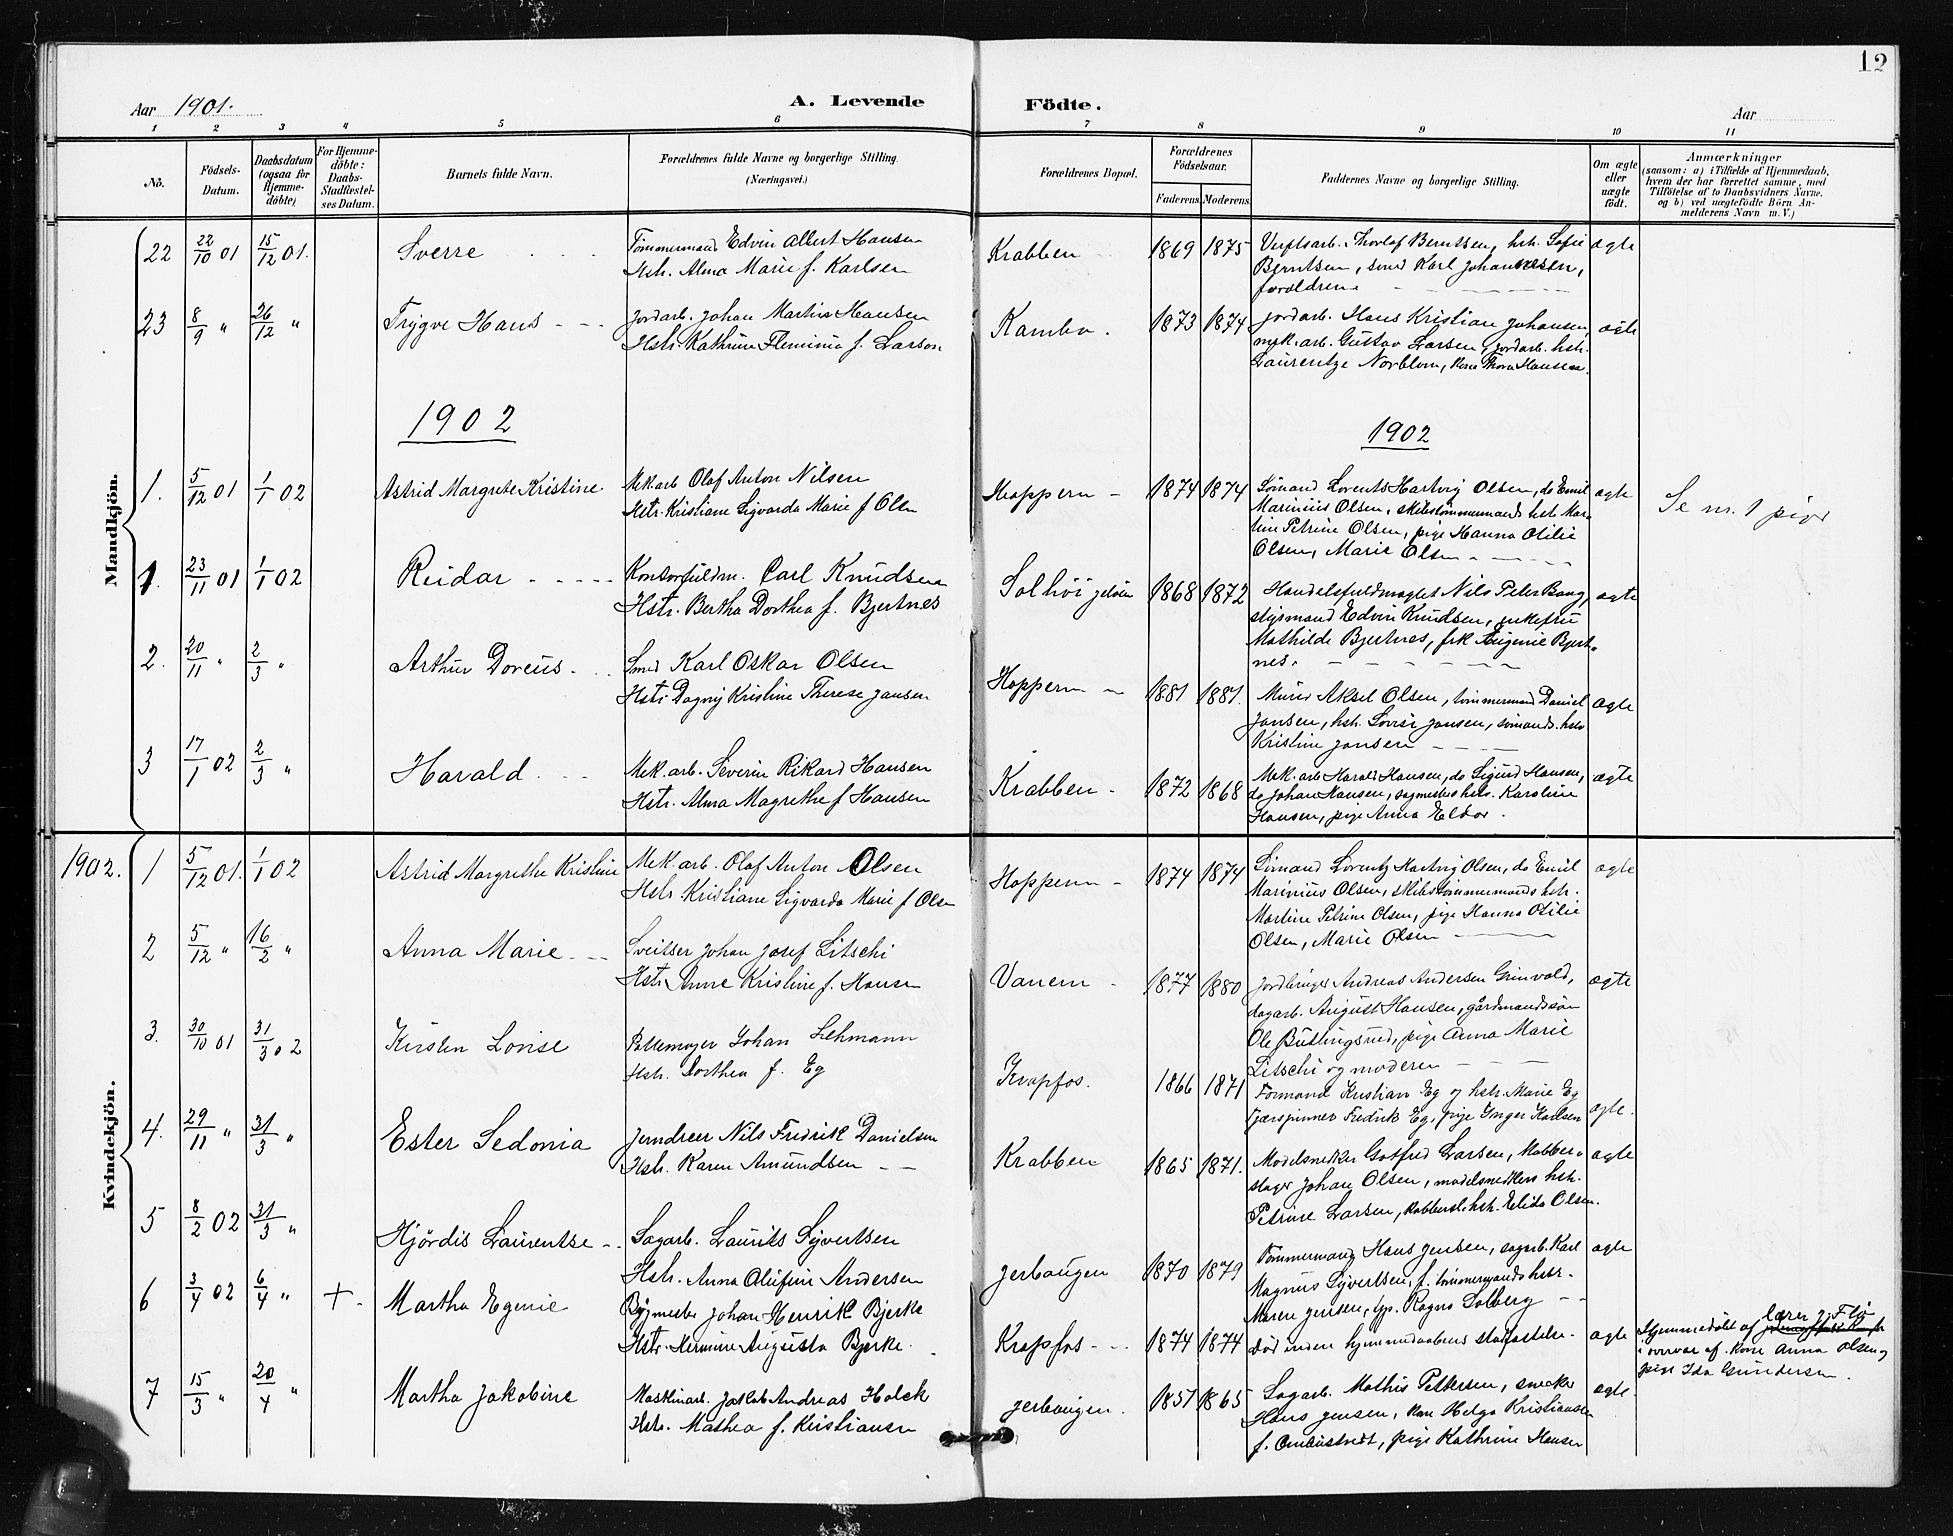 12
Aar 1901. A. Levende Födte. Aar
1 2 3 4 5 6 7 8 9 10 11
No.
Födsels-Datum.
Daabsdatum (ogsaa for Hjemme-döbte)
For Hjemme-döbte: Daabs-Stadfæstel-ses Datum.
Barnets fulde Navn.
Forældrenes fulde Navne og borgerlige Stilling.
(Næringsvei.)
Forældrenes Bopæl.
Forældrenes Födselsaar.
Faderens Moderens
Faddernes Navne og borgerlige Stilling.
Om ægte eller uægte födt.
Anmærkninger
(saasom: a) i Tilfælde af Hjemmedaab,
hvem der har forrettet samme, med
Tilföielse af to Daabsvidners Navne.
og b) ved uægtefödte Börn An-
melderens Navn m. V.)
Mandkjön.
22 22/10 01 15/12 01. Sverre Tömmermand Edvin Albert Hansen
Hstr. Alma Marie f. Karlsen
Krabben 1869 1875 Verftsarb. Thorlaf Berntsen, hstr. Sofie
Berntsen, smed Karl Johannesen,
foreldrene
ægte
23 8/9 " 26/12 " Trygve Hans Jordarb. Johan Martin Hansen
Hstr. Kathrine Flemina f. Larson
Kambo. 1873 1874 Jordarb. Hans Kristian Johansen,
mek. arb. Gustav Larsen, jordarb. hstr.
Laurentze Norblom, kone Thora Hansen.
ægte
1902
1902
1. 5/12 01 1/1 02 Astrid Margrete Kristine Mek arb Olaf Anton Nilsen
Hstr. Kristiane Sigvarda Marie f Olsen
Hoppern 1874 1874 Sömand Lorents Hartvig Olsen, do Emil
Marinius Olsen, skibstömmermands hst. Mar-
tine Petrine Olsen, pige Hanna Otilie
Olsen, Marie Olsen
ægte Se nr. 1 piger
1. 23/11 01 1/1 02 Reidar Kontorfuldm. Carl Knudsen
Hstr. Bertha Dorthea f. Bjertnes
Solhöi Jelöen 1868 1872 Handelsfuldmægtet Nils Peter Bang,
stigsmand Edvin Knudsen, enkefru
Mathilde Bjertnes, frk Eugenie Bjert-
nes.
ægte
2. 20/11 " 2/3 " Arthur Doreus Smed Karl Oskar Olsen
Hstr Dagny Kristine Therese Jansen
Hoppern 1881 1881. Murer Aksel Olsen, tömmermand Daniel
Jansen, hstr. Lovise Jansen, sömands. hstr
Kristine Jansen
ægte
3 17/1 02 2/3 " Harald Mek. arb. Severin Rikard Hansen
Hstr. Alma Magrethe f Hansen
Krabben 1872 1868 Mek. arb Harald Hansen, do Sigurd Hansen,
do Johan Hansen, sagmesters hstr. Karoline
Hansen, pige Anna Eldor.
ægte
Kvindekjön.
1902. 1 5/12 01. 1/1 02 Astrid Margrethe Kristine Mek. arb. Olaf Anton Olsen
Hstr. Kristiane Sigvarda Marie f Olsen
Hoppern 1874 1874 Sömand Lorentz Hartvig Olsen, do Emil
Marinius Olsen, skibstömmermands hstr.
Martine Petrine Olsen, pige Hanna Otilie
Olsen, Marie Olsen
ægte
2 5/12 " 16/2 " Anna Marie Sveitser Johan Josef Litschi
Hstr. Anne Kristine f. Hansen
Vanem 1877 1880 Jordbruger Andreas Andersen Grinvold,
dagarb. August Hansen, gårdmandssön
Ole Butlingsrud, pige Anna Marie
Litschi og moderen
ægte
3. 30/10 01 31/3 02 Kirsten Lovise Pottemager Johan Lehmann
Hstr. Dorthea f. Eg
Krapfos. 1866 1871 Formand Kristian Eg og hstr. Marie Eg
fjærspinner Fredrik Eg, pige Inger Karlsen
ægte.
4. 29/11 " 31/3 " Ester Sedonia Jerndreer Nils Fredrik Danielsen
Hstr. Karen Amundsen
Krabben 1865 1871. Modelsnedker Gotfred Larsen, Kobber-
slager Johan Olsen, modelsnedkers hstr.
Petrine Larsen, kobbersl. hstr. Elida Olsen.
ægte
5 8/2 02 31/3 " Hjördis Laurentse Sagarb. Laurits Syvertsen
Hstr. Anna Olufine Andersen
Jerbaugen 1870 1879 Tömmermand Hans Jensen, sagarb. Karl
Magnus Syvertsen, f. tömmermands hstr.
Maren Jensen, sp. Ragna Solberg
ægte
6 3/4 02 6/4 " + Martha Egenie Bygmester Johan Henrik Bjerke
Hstr. Hermine Augusta Bjerke.
Krapfos 1874 1874 Död inden hjemmedaabens stadfæstelse.
ægte Hjemmedöbt af lærer J. Flö
i overvær af. kone Anna Olsen og
pige Ida Gundersen.
7 15/3 " 20/4 " Martha Jakobine Maskinarb. Jakob Andreas Holck
Hstr. Mathea f. Kristiansen
Jerbaugen. 1857 1865 Sagarb. Mathis Pettersen, snecker
Hans Jensen, kone Helga Kristiansen
f. Ombustvedt, pige Kathrine Hansen
ægte